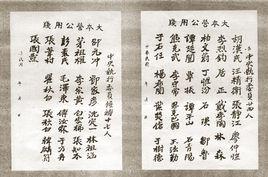 大本營公用牋
中央執行委員廿四人
胡漢民 汪精衛 張靜江 廖仲愷
李烈鈞 居正 戴季陶 林森
柏文蔚 丁惟汾 石瑛 鄒魯
譚延闓 覃振 譚平山 石青陽
熊克武 李守常 恩克巴圖 王法勤
于右任 楊希閔 葉楚傖 于樹德
大本營公用牋
中央執行委員候補十七人
邵元冲 鄧家彥 沈定一 林祖涵
茅祖權 李宗黃 白雲梯 張知本
彭素民 毛澤東 傅汝霖 于方舟
張葦村 瞿秋白 張秋白 韓麟符
張國燾